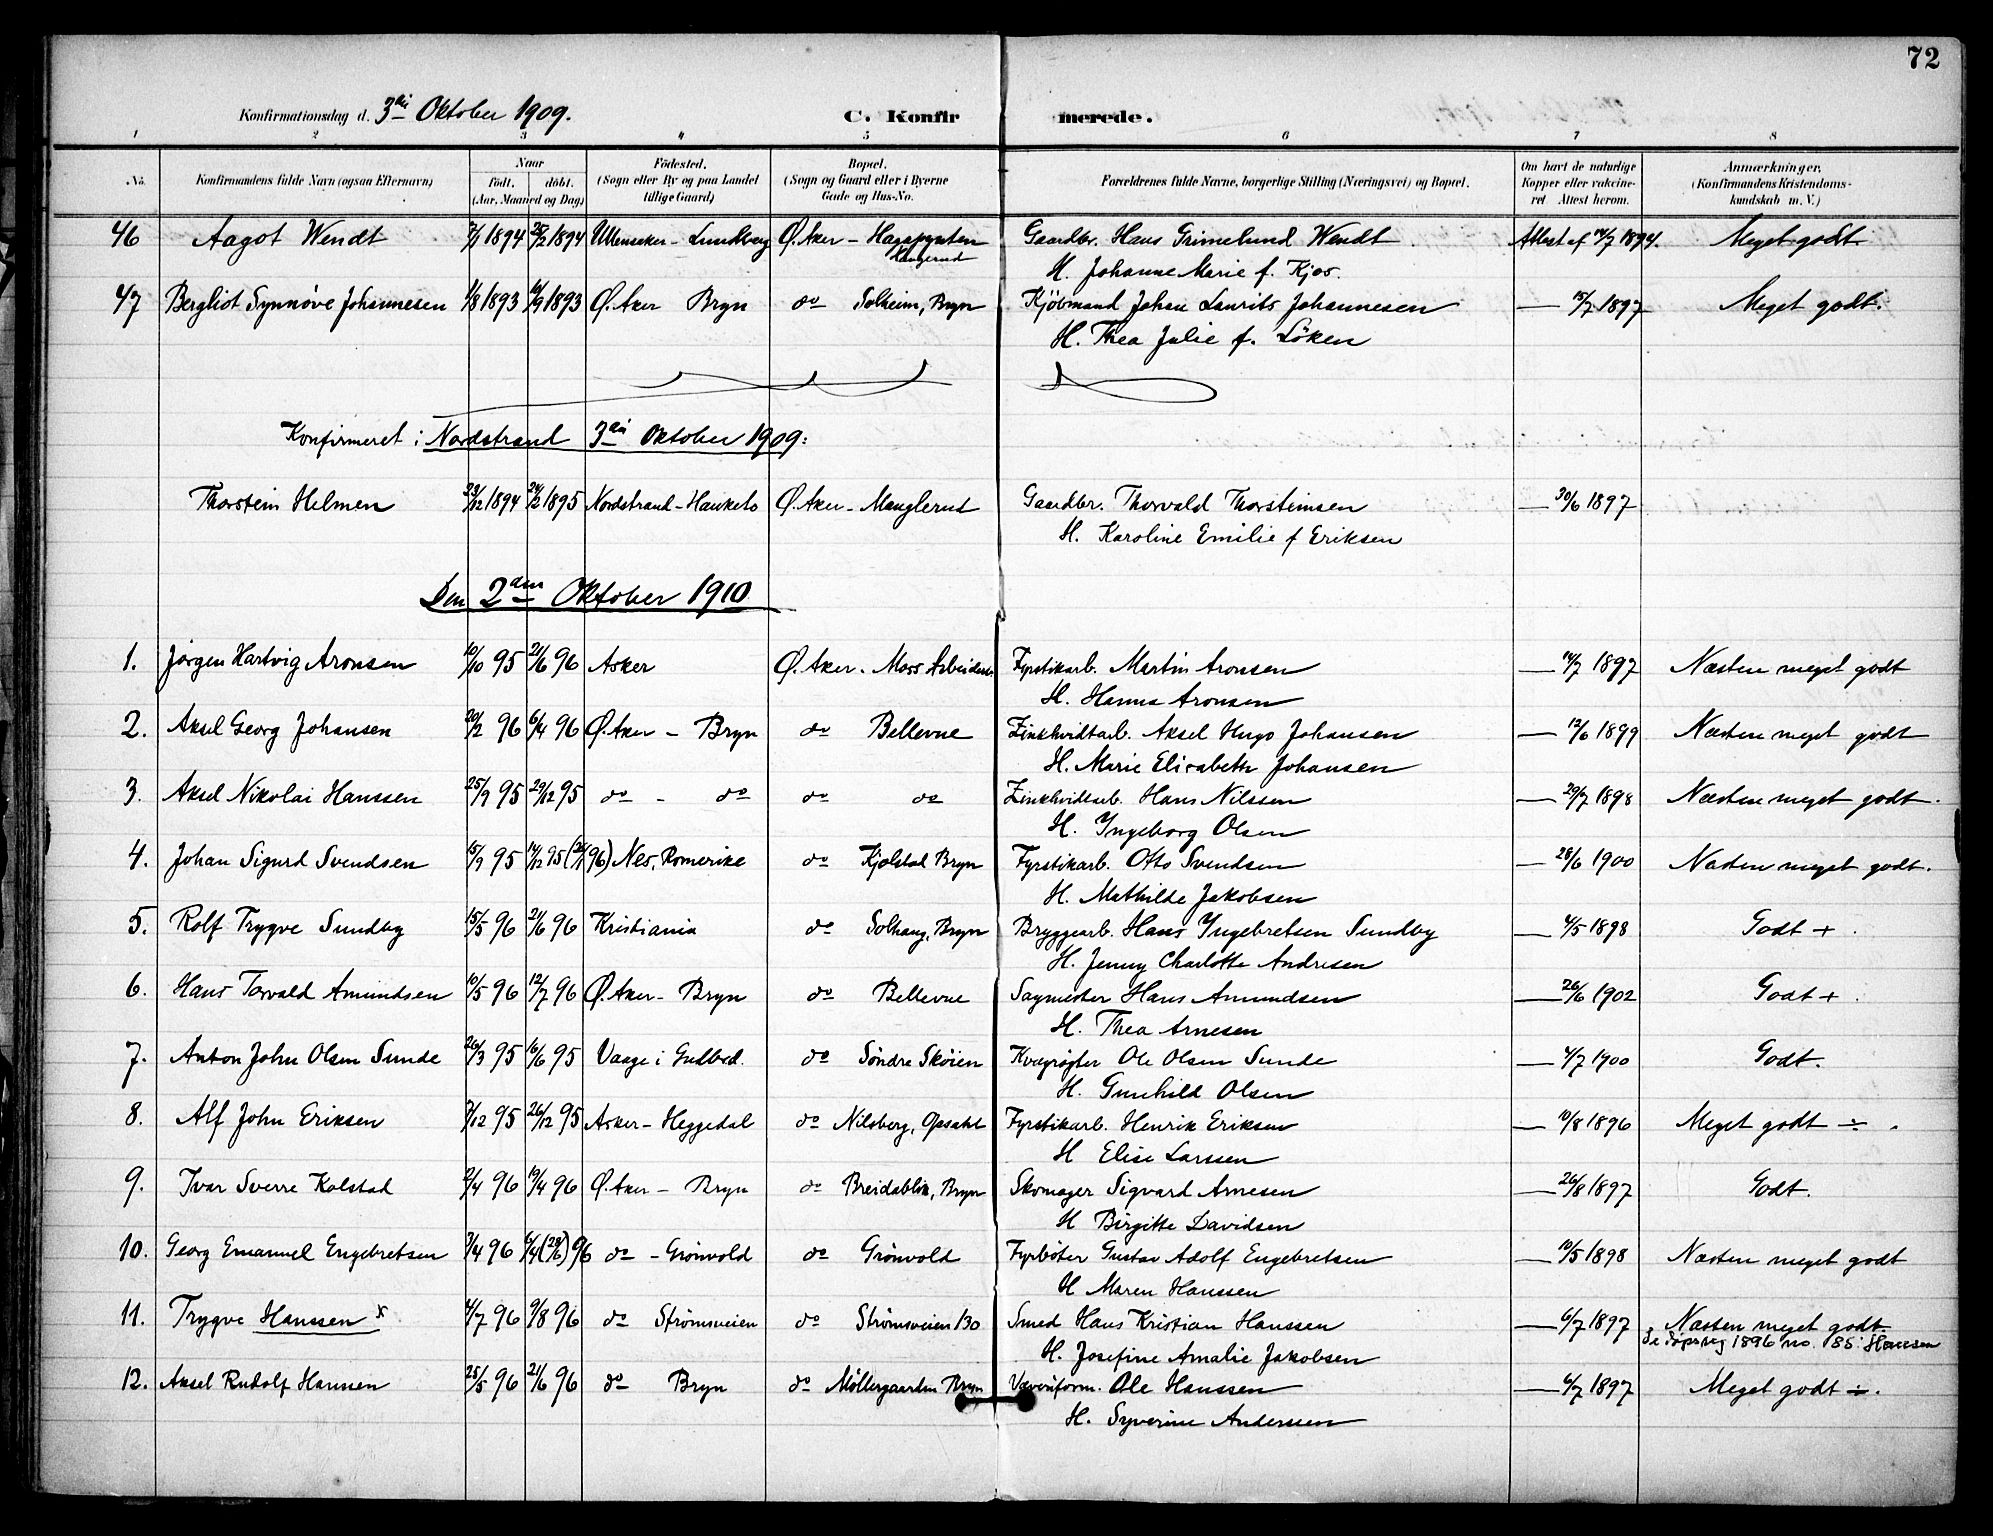 72
Konfirmationsdag d. 3die Oktober 1909. C. Konfirmerede.
1 2 3 4 5 6 7 8
No. Konfirmandens fulde Navn (ogsaa Efternavn) Naar født. døbt. (Aar, Maaned og Dag) Fødested. (Sogn eller By og paa Landet tillige Gaard) Bopæl. (Sogn og Gaard eller i Byerne Gade og Hus-No. Forældrenes fulde Navne, borgerlige Stilling (Næringsvei) og Bopæl. Om havt de naturlige Kopper eller vakcineret Attest herom. Anmærkninger. (Konfirmandens Kristendomskundskab m. V.)
46 Aagot Wendt 1894 28/2 1894 Ullensaker - Lundberg Ø. Aker - Gaardbr. Hans Grimelund Wendt Attest af 14/7 1894. Meget godt
H. Johanne Marie f. Kjos.
47 Bergliot Synnøve Johannesen 1/8 1893 1893 Ø. Aker Bryn do Solheim, Bryn Kjøbmand Johan Laurits Johannesen — 15/7 1897 Meget godt.
H. Thea Julie f. Løken
Konfirmeret i Nordstrand 3die Oktober 1909:
Thorstein Helmen 23/12 1894 24/2 1895 Nordstrand - Hauketo Ø. Aker - Manglerud Gaardbr. Thorvald Thorsteinsen — 30/6 1897
H. Karoline Emilie f Eriksen
Den 2den Oktober 1910
1. Jørgen Hartvig Aronsen 10/10 95 21/6 96 Asker Ø. Aker. Moss Fyrstikarb. Martin Aronsen — 14/7 1897 Næsten meget godt
H. Hanna Aronsen
2. Aksel Georg Johansen 20/2 96 6/4 96 Ø. Aker - Bryn do Bellevue Zinkhvidtarb. Aksel Hugo Johansen — 12/6 1899 Næsten meget godt
H. Marie Elisabeth Johansen
3. Aksel Nikolai Hanssen 25/9 95 29/12 95 do - do do do Zinkhvidtarb. Hans Nilssen — 29/7 1898 Næsten meget godt.
H. Ingeborg Olsen
4. Johan Sigurd Svendsen 15/9 95 14/12 95 (26/1 96) Nes, Romerike do Kjølstad Bryn Fyrstikarb. Otto Svendsen — 28/6 1900 Næsten meget godt.
H. Mathilde Jakobsen
5. Rolf Trygve Sundby 15/5 96 21/6 96 Kristiania do Solhaug, Bryn Bryggearb. Hans Ingebretsen Sundby — 4/5 1898 Godt +.
H. Jenny Charlotte Andresen
6. Hans Torvald Amundsen 10/5 96 12/7 96 Ø. Aker - Bryn do Bellevue Sagmester Hans Amundsen — 26/6 1902 Godt +.
H. Thea Arnesen
7. Anton John Olsen Sunde 26/3 95 16/6 95 Vaage i Gudbrd. do Søndre Skøien Kvægrøgter Ole Olsen Sunde — 4/7 1900 Godt.
H. Gunhild Olsen
8. Alf John Eriksen 7/12 95 26/12 95 Asker - Heggedal do Nilsberg, Opsahl Fyrstikarb. Henrik Eriksen — 10/8 1896 Meget godt ÷.
H Elise Larssen
9. Ivar Sverre Kolstad 2/4 96 19/4 96 Ø. Aker - Bryn do Breidablik, Bryn Skomager Sigvard Arnesen — 26/8 1897 Godt.
H Birgitte Davidsen
10. Georg Emanuel Engebretsen 3/4 96 6/4 (28/6) 96 do - Grønvold do Grønvold Fyrbøter Gustav Adolf Engebretsen — 10/5 1898 Næsten meget godt
H Maren Hanssen
11. Trygve Hanssen x 4/7 96 9/8 96 do Strømsveien do Strømsveien 130 Smed Hans Kristian Hanssen — 6/7 1897 Næsten meget godt
Se 1896 no. 185: Hansen
H. Josefine Amalie Jakobsen
12. Aksel Rudolf Hansen 25/5 96 21/6 96 do Bryn do Møllergaarden Bryn Ole Hanssen — 6/7 1897 Meget godt ÷.
H. Syverine Anderssen